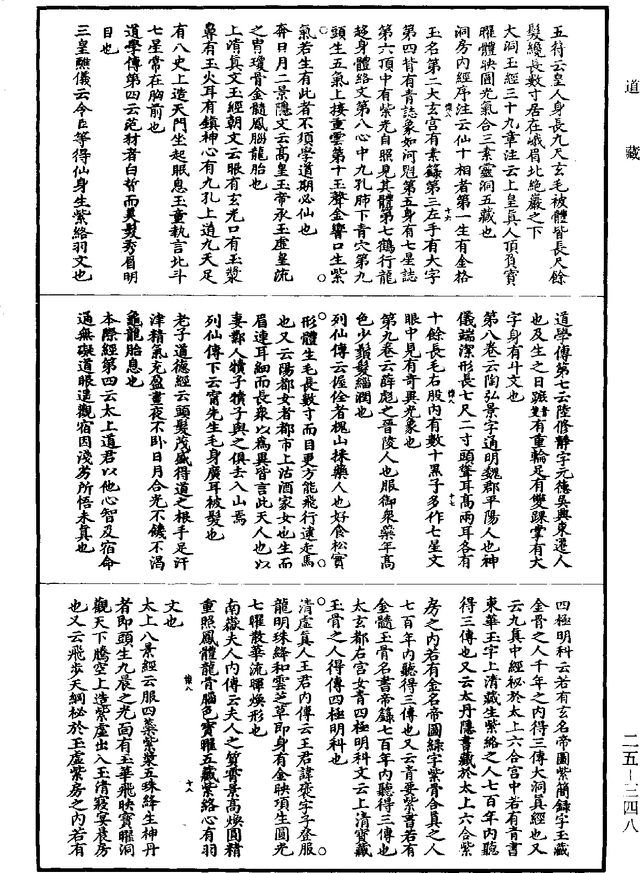 道藏
五符云皇人身長九尺玄毛被體皆長尺餘
髮纔長數寸居在峨眉北絶巖之下
大洞玉經三十九章注云上皇真人頂負寶
曜體映圓光氣合三素靈洞五藏也
洞房内經序注云仙十相者第一生有金格
玉名第二大玄宫有素籙第三左手有大字
第四背有青誌象如河魁第五身有七星誌
第六頂中有紫光自照見其體第七鶴行龍
趍身體絡文第八心中九孔肺下青穴第九
頭生五氣上接重雲第十玉聲金響口生紫
氣若生有此者不須學道期必仙也
奔日月二景隱文云高皇玉帝承玉虚皇流
之胄瓊骨金髓鳳腦龍胎也
上清真文玉經朝文云眼有玄光口有玉漿
鼻有玉火耳有鎮神心有九孔上道九天足
有八史上造天門坐起眠息玉童執言北斗
七星常在胸前也
道學傳第四云范材者白晳而美髮秀眉明
目也
三皇醮儀云令臣等得仙身生紫絡羽文也
道學傳第七云陸修靜字元德吳興東遷人
也及生之日蹠有重輪足有雙踝掌有大
字身有斗文也
第八卷云陶弘景字通明魏郡平陽人也神
儀端潔形長七尺二寸頭聳耳高兩耳各有
十餘長毛右股内有數十黑子多作七星文
眼中見有奇異光象也
第九卷云薛彪之晉陵人也服御衆藥年高
色少鬚髮緇潤也
列仙傳云偓佺者槐山採藥人也好食松實
形體生毛長數寸而目更方能飛行逮走馬
也又云陽都女者都市上沽酒家女也生而
眉連耳細而長衆以爲異皆言此天人也以
妻鄰人犢子犢子與之俱去入山焉
列仙傳下云甯先生毛身廣耳被髮也
老子道德經云頭髮茂盛得道之根手足汗
津精氣充盈晝夜不卧日月合光不饑不渴
龜龍胎息也
本際經第四云太上道君以他心智及宿命
通無礙道眼遥觀宿因淺劣所悟未真也
四極明科云若有玄名帝圖紫簡錄字玉藏
金骨之人千年之内得三傳大洞真經也又
云九真中經秘於太上六合宫中若有青書
東華玉字上清藏生紫絡之人七百年内聽
得三傳也又云太丹隱書藏於太上六合紫
房之内若有金名帝圖綠字紫骨合真之人
七百年内聽得三傳也又云青要紫書若有
金髓玉骨名書帝錄七百年内聽得三傳也
太玄都右宫女青四極明科文云上清寶藏
玉骨之人得傳四極明科也
清虚真人王君内傳云王君諱褒字子登服
龍明珠絳和雲芝草即身有金映項生圓光
七曜散華流暉煥形也
南嶽夫人内傳云夫人之質霄景高煥圓精
重照鳳體龍骨腦色寶曜五藏紫絡心有羽
文也
太上八景經云服四藥紫漿五珠絳生神丹
者即頭生九晨之光面有玉華飛映寶曜洞
觀天下騰空上造紫虚出入玉清寢宴晨房
也又云飛步天綱秘於玉虚紫房之内若有
二五—三四八